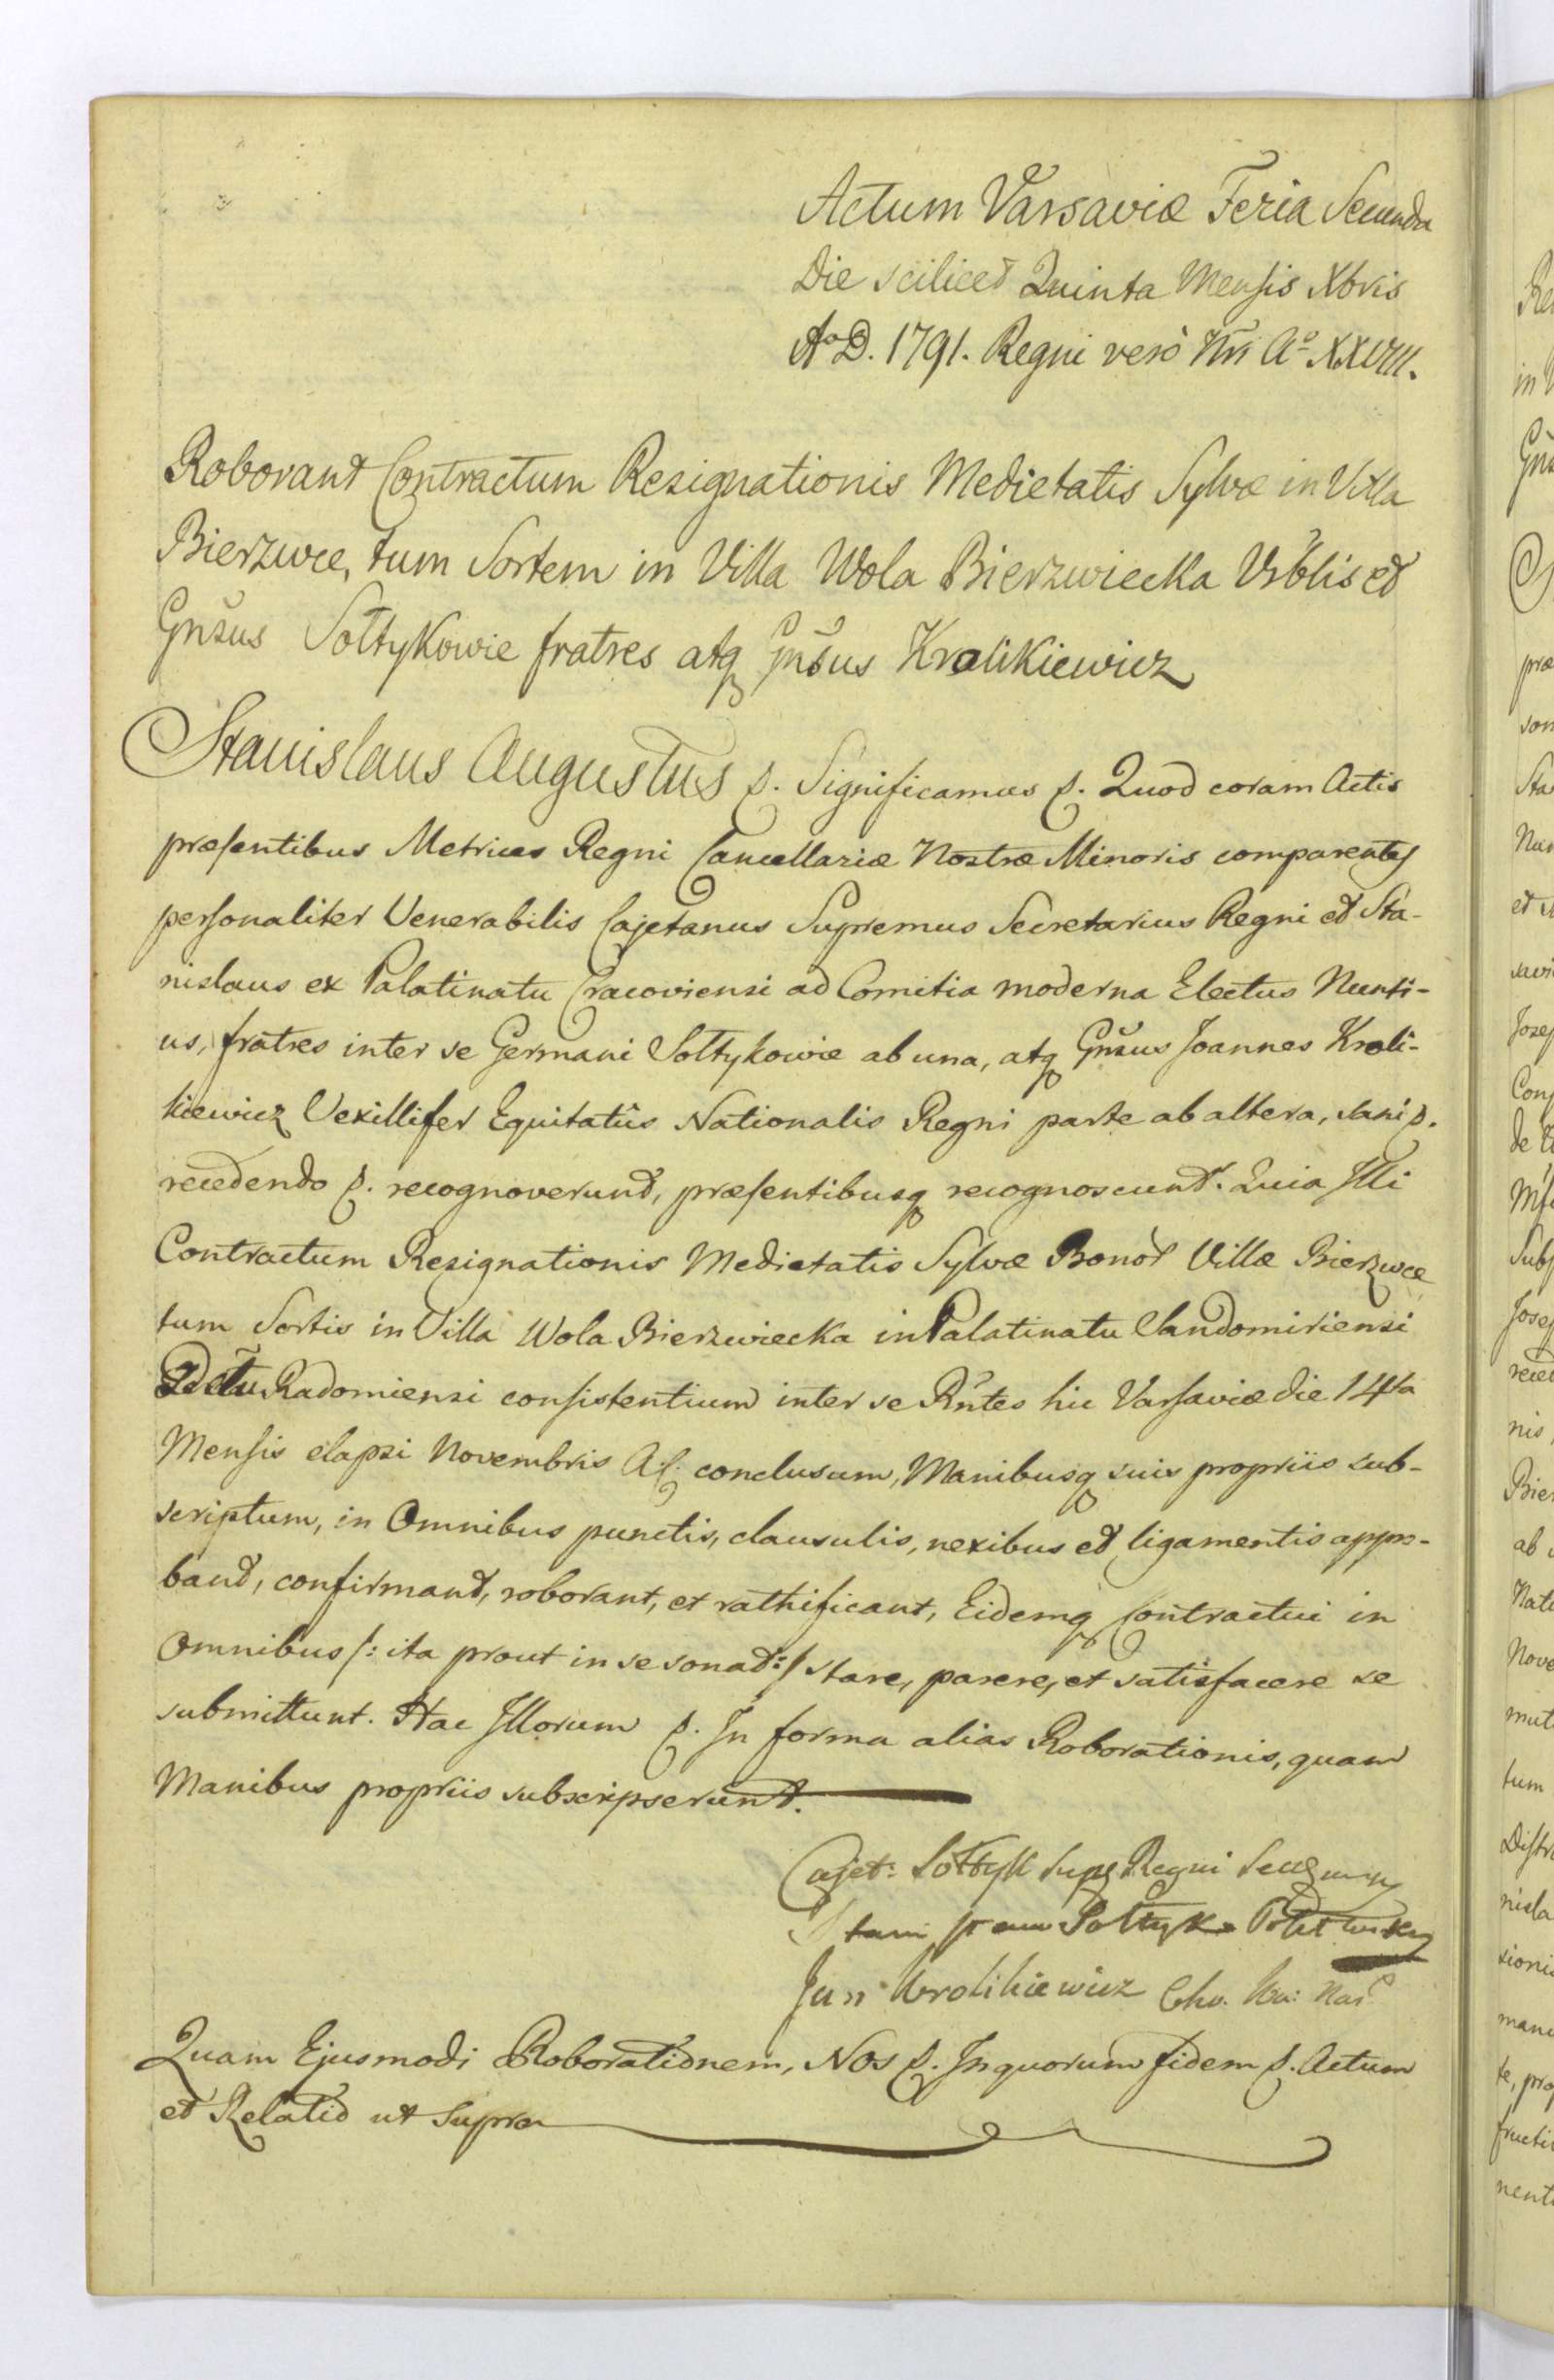 Actum Varsaviæ Feria Secunda
Die scilicet Quinta Mensis Xbris
Ao D. 1791. Regni verò Nri Ao XXVIII.
Roborant Contractum Resignationis Medietatis Sylvæ in Villa
Bierzwce, tum Sortem in Villa Wola Bierzwiecka Vrblis et
Gnsus Sołtykowie fratres atq Gnsus Krolikiewicz
Stanislaus Augustus p. Significamus p. Quod coram Actis
præsentibus Metrices Regni Cancellariæ Nostræ Minoris comparentes
personaliter Venerabilis Cajetanus Supremus Secretarius Regni et Sta-
nislaus ex Palatinatu Cracoviensi ad Comitia moderna Electus Nunti-
us, fratres inter se Germani Sołtykowie ab una, atq Gnsus Joannes Kroli-
kiewicz Vexillifer Equitatûs Nationalis Regni parte ab altera, sani p.
recedendo p. recognoverunt, præsentibusq recognoscunt. Quia Illi
Contractum Resignationis Medietatis Sylvæ Bonor Villæ Bierzwce
tum Sortis in Villa Wola Bierzwiecka in Palatinatu Sandomiriensi
Radomiensi consistentium inter se Rntes hic Varsaviæ die 14ta
Mensis elapsi Novembris conclusum, Manibusq suis propriis sub-
scriptum, in Omnibus punctis, clausulis, nexibus et ligamentis appro-
bant, confirmant, roborant, et rathificant, Eidemq Contractui in
Omnibus /: ita prout in se sonat :/ stare, parere, et satisfacere se
submittunt. Hac Illorum p. In forma alias Roborationis, quam
Manibus propriis subscripserunt.
Cajet: Sołtyk Regni
Sołtyk
Jan Krolikiewicz Cho. Ka: Nar
Quam Ejusmodi Roborationem, Nos p. In quorum fidem p. Actum
et Relatio ut Supra